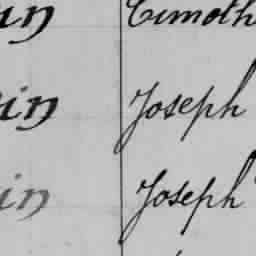 in Timoth
in Joseph
in Joseph